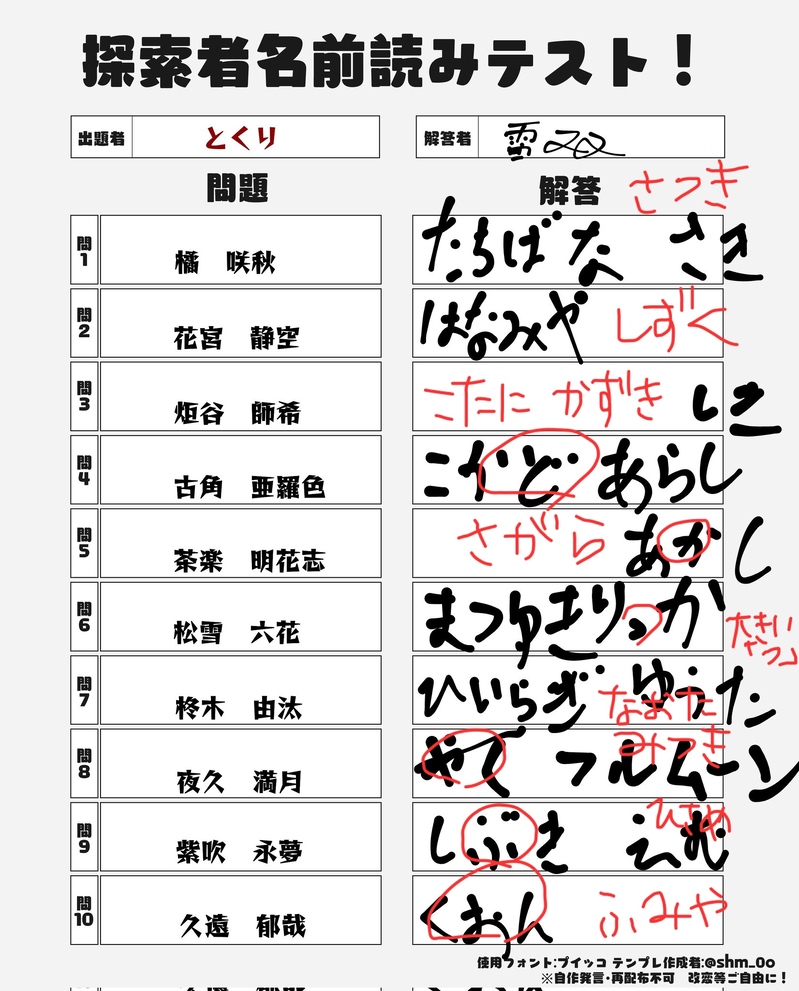 探索者名前読みテスト！
出題者 とくり 解答者
問題 解答 さつき
問1 橘 咲秋 たちばな さき
問2 花宮 静空 はなみや しずく
問3 炬谷 師希 こたに かずき しき
問4 古角 亜羅色 こかど あらし
問5 茶楽 明花志 さがら あかし
問6 松雪 六花 まつゆき りっか
大きいやつ
問7 柊木 由汰 ひいらぎ ゆうた なおた
みつき
問8 夜久 満月 やく フルムーン
ひさめ
問9 紫吹 永夢 しぶき えむ
問10 久遠 郁哉 くおん ふみや
使用フォント:プイッコ テンプレ作成者:@shm_0o
※自作発言・再配布不可 改変等ご自由に！